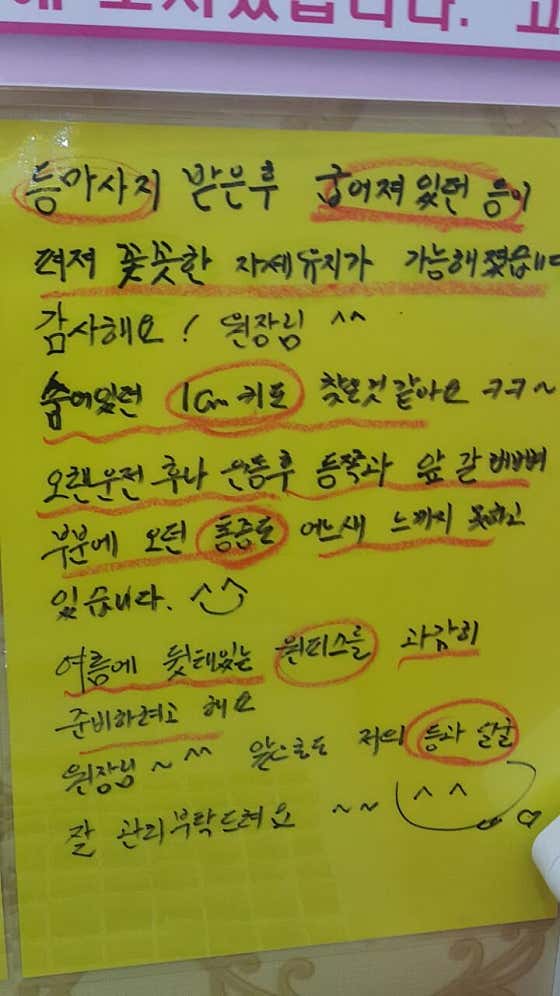 에 모시겠습니다. 고
등마사지 받은후 굽어져 있던 등이
펴져 꽃꽃한 자세유지가 가능해졌습니다
감사해요! 원장님 ^^
숨어있던 1cm 키도 찾은것 같아요 ㅋㅋ~
오랜운전 후나 운동후 등쪽과 앞 갈비뼈
부분에 오던 통증도 어느새 느끼지 못하고
있습니다. ^^
여름에 뒷태있는 원피스를 과감히
준비하려고 해요
원장님 ~ ^^ 앞으로도 저의 등과 얼굴
잘 관리부탁드려요 ~~ ^^